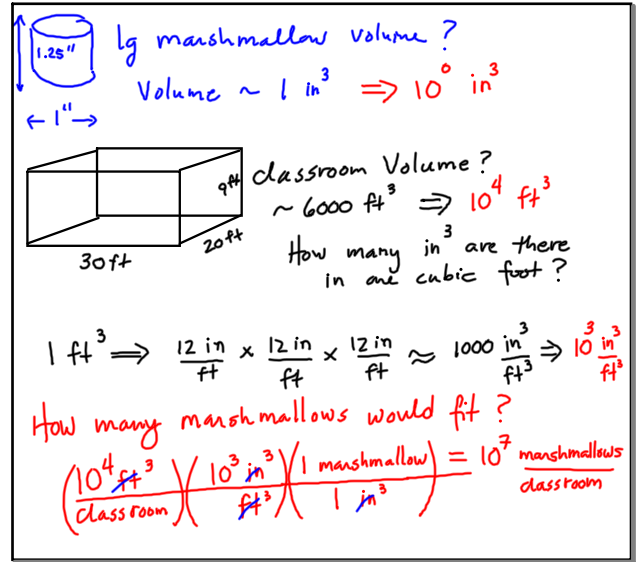 1.25" lg marshmallow volume?
Volume ~ 1 in³ ⇒ 10⁰ in³
← 1" →
Classroom Volume?
9ft
~ 6000 ft³ ⇒ 10⁴ ft³
20ft
30ft
How many in³ are there
in one cubic foot?
1 ft³ ⇒ 12 in/ft × 12 in/ft × 12 in/ft ≈ 1000 in³/ft³ ⇒ 10³ in³/ft³
How many marshmallows would fit?
(10⁴ ft³/classroom)(10³ in³/ft³)(1 marshmallow/1 in³) = 10⁷ marshmallows/classroom